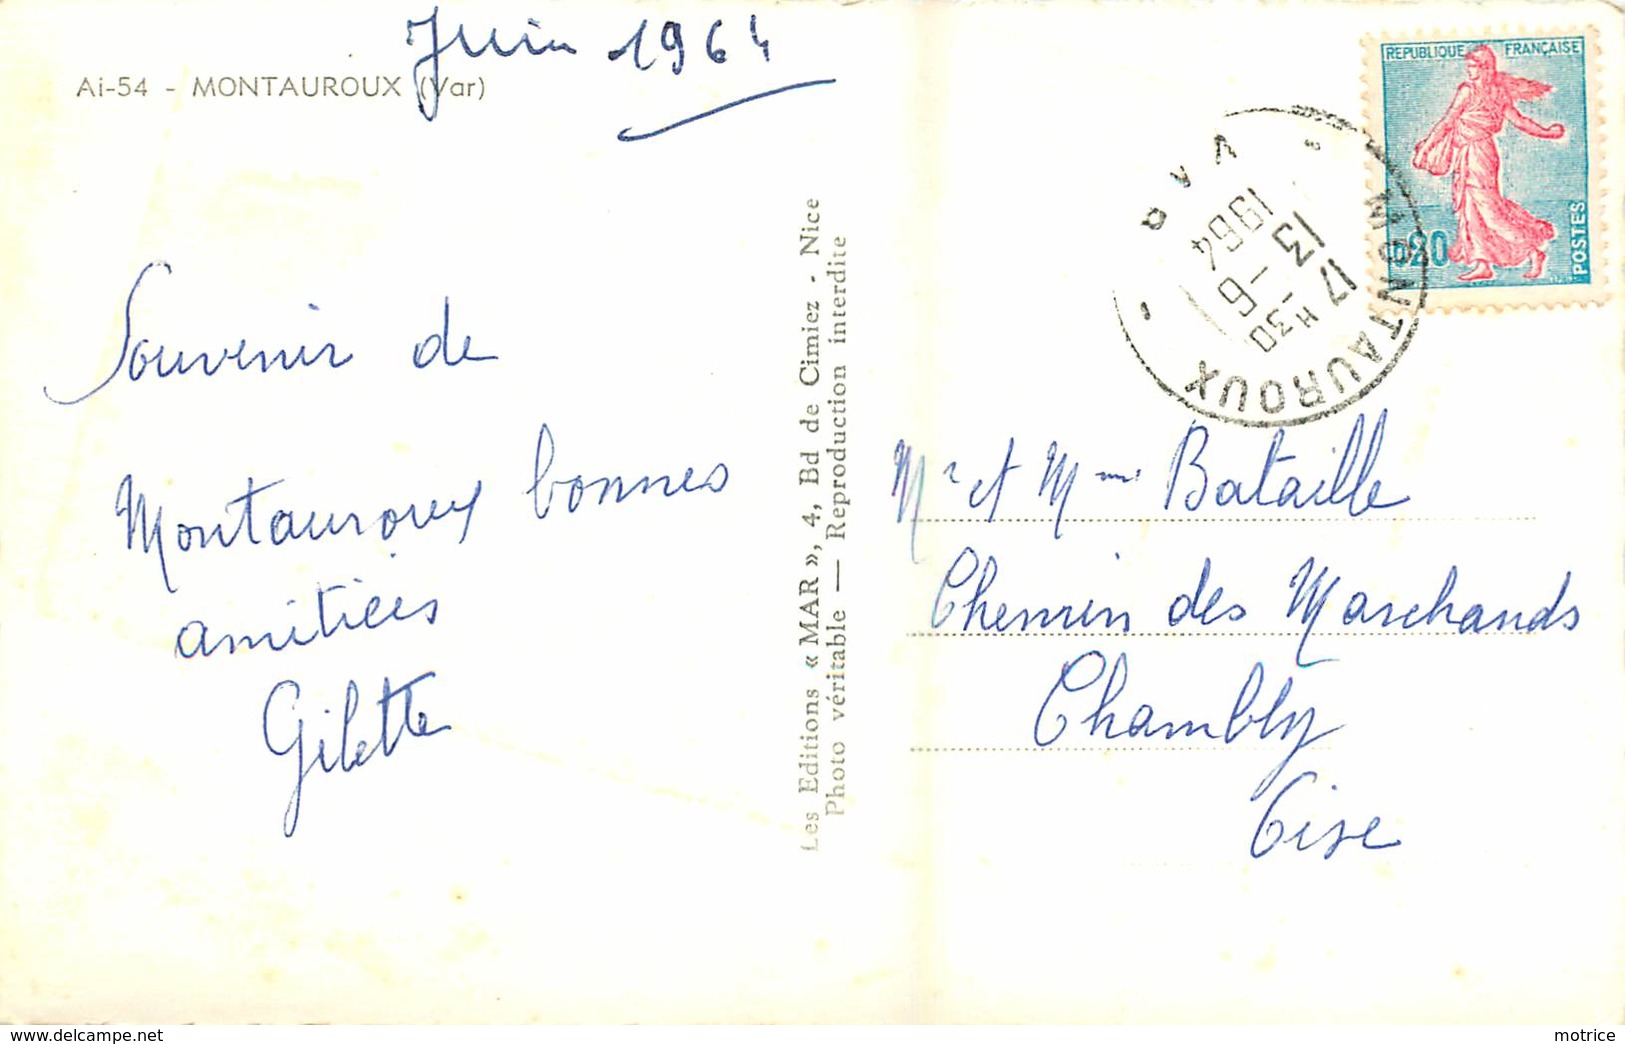 Juin 1964
Ai-54 - MONTAUROUX (Var)
Souvenir de
Montauroux bonnes
amitiées
Gilette
Les Editions « MAR », 4, Bd de Cimiez - Nice
Photo véritable — Reproduction interdite
REPUBLIQUE FRANÇAISE
0,20
POSTES
MONTAUROUX
VAR
17 H 30
13 - 6
1964
Mr et Mme Bataille
Chemin des Marchands
Chambly
Oise
delcampe.net
motrice